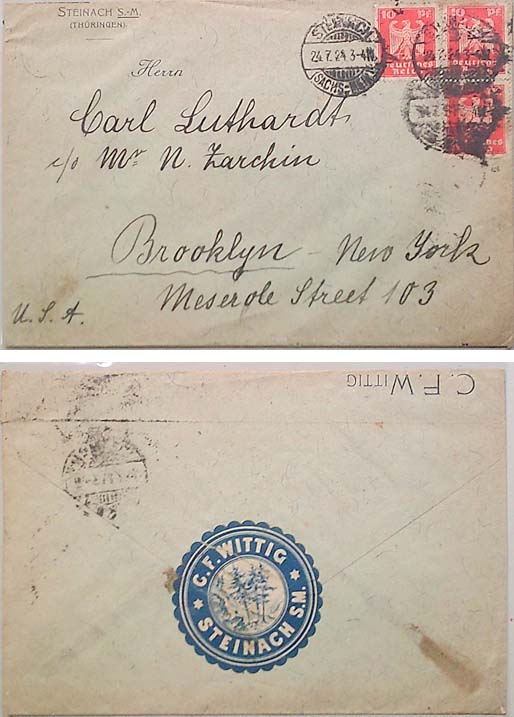 STEINACH S.-M.
(THÜRINGEN).
STEINACH
24.7.24.3-4N.
(SACHS.-MEIN.)
10 Pf
Deutsches
Reich
10 Pf
Deutsches
Reich
Herrn
Carl Luthardt
c/o Mr N. Zarchin
Brooklyn - New York
Meserole Street 103
U.S.A.
C.F. WITTIG
C.F. WITTIG
STEINACH S.M.